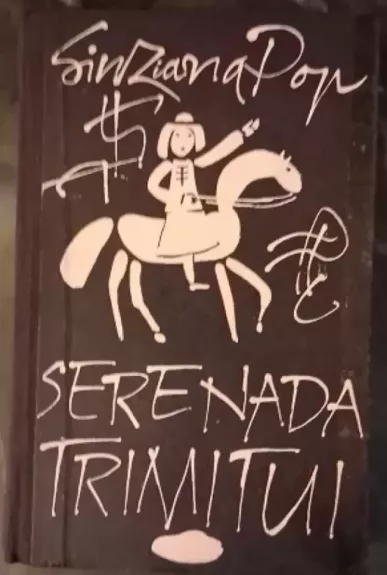 Sinziana Pop
SERENADA
TRIMITUI